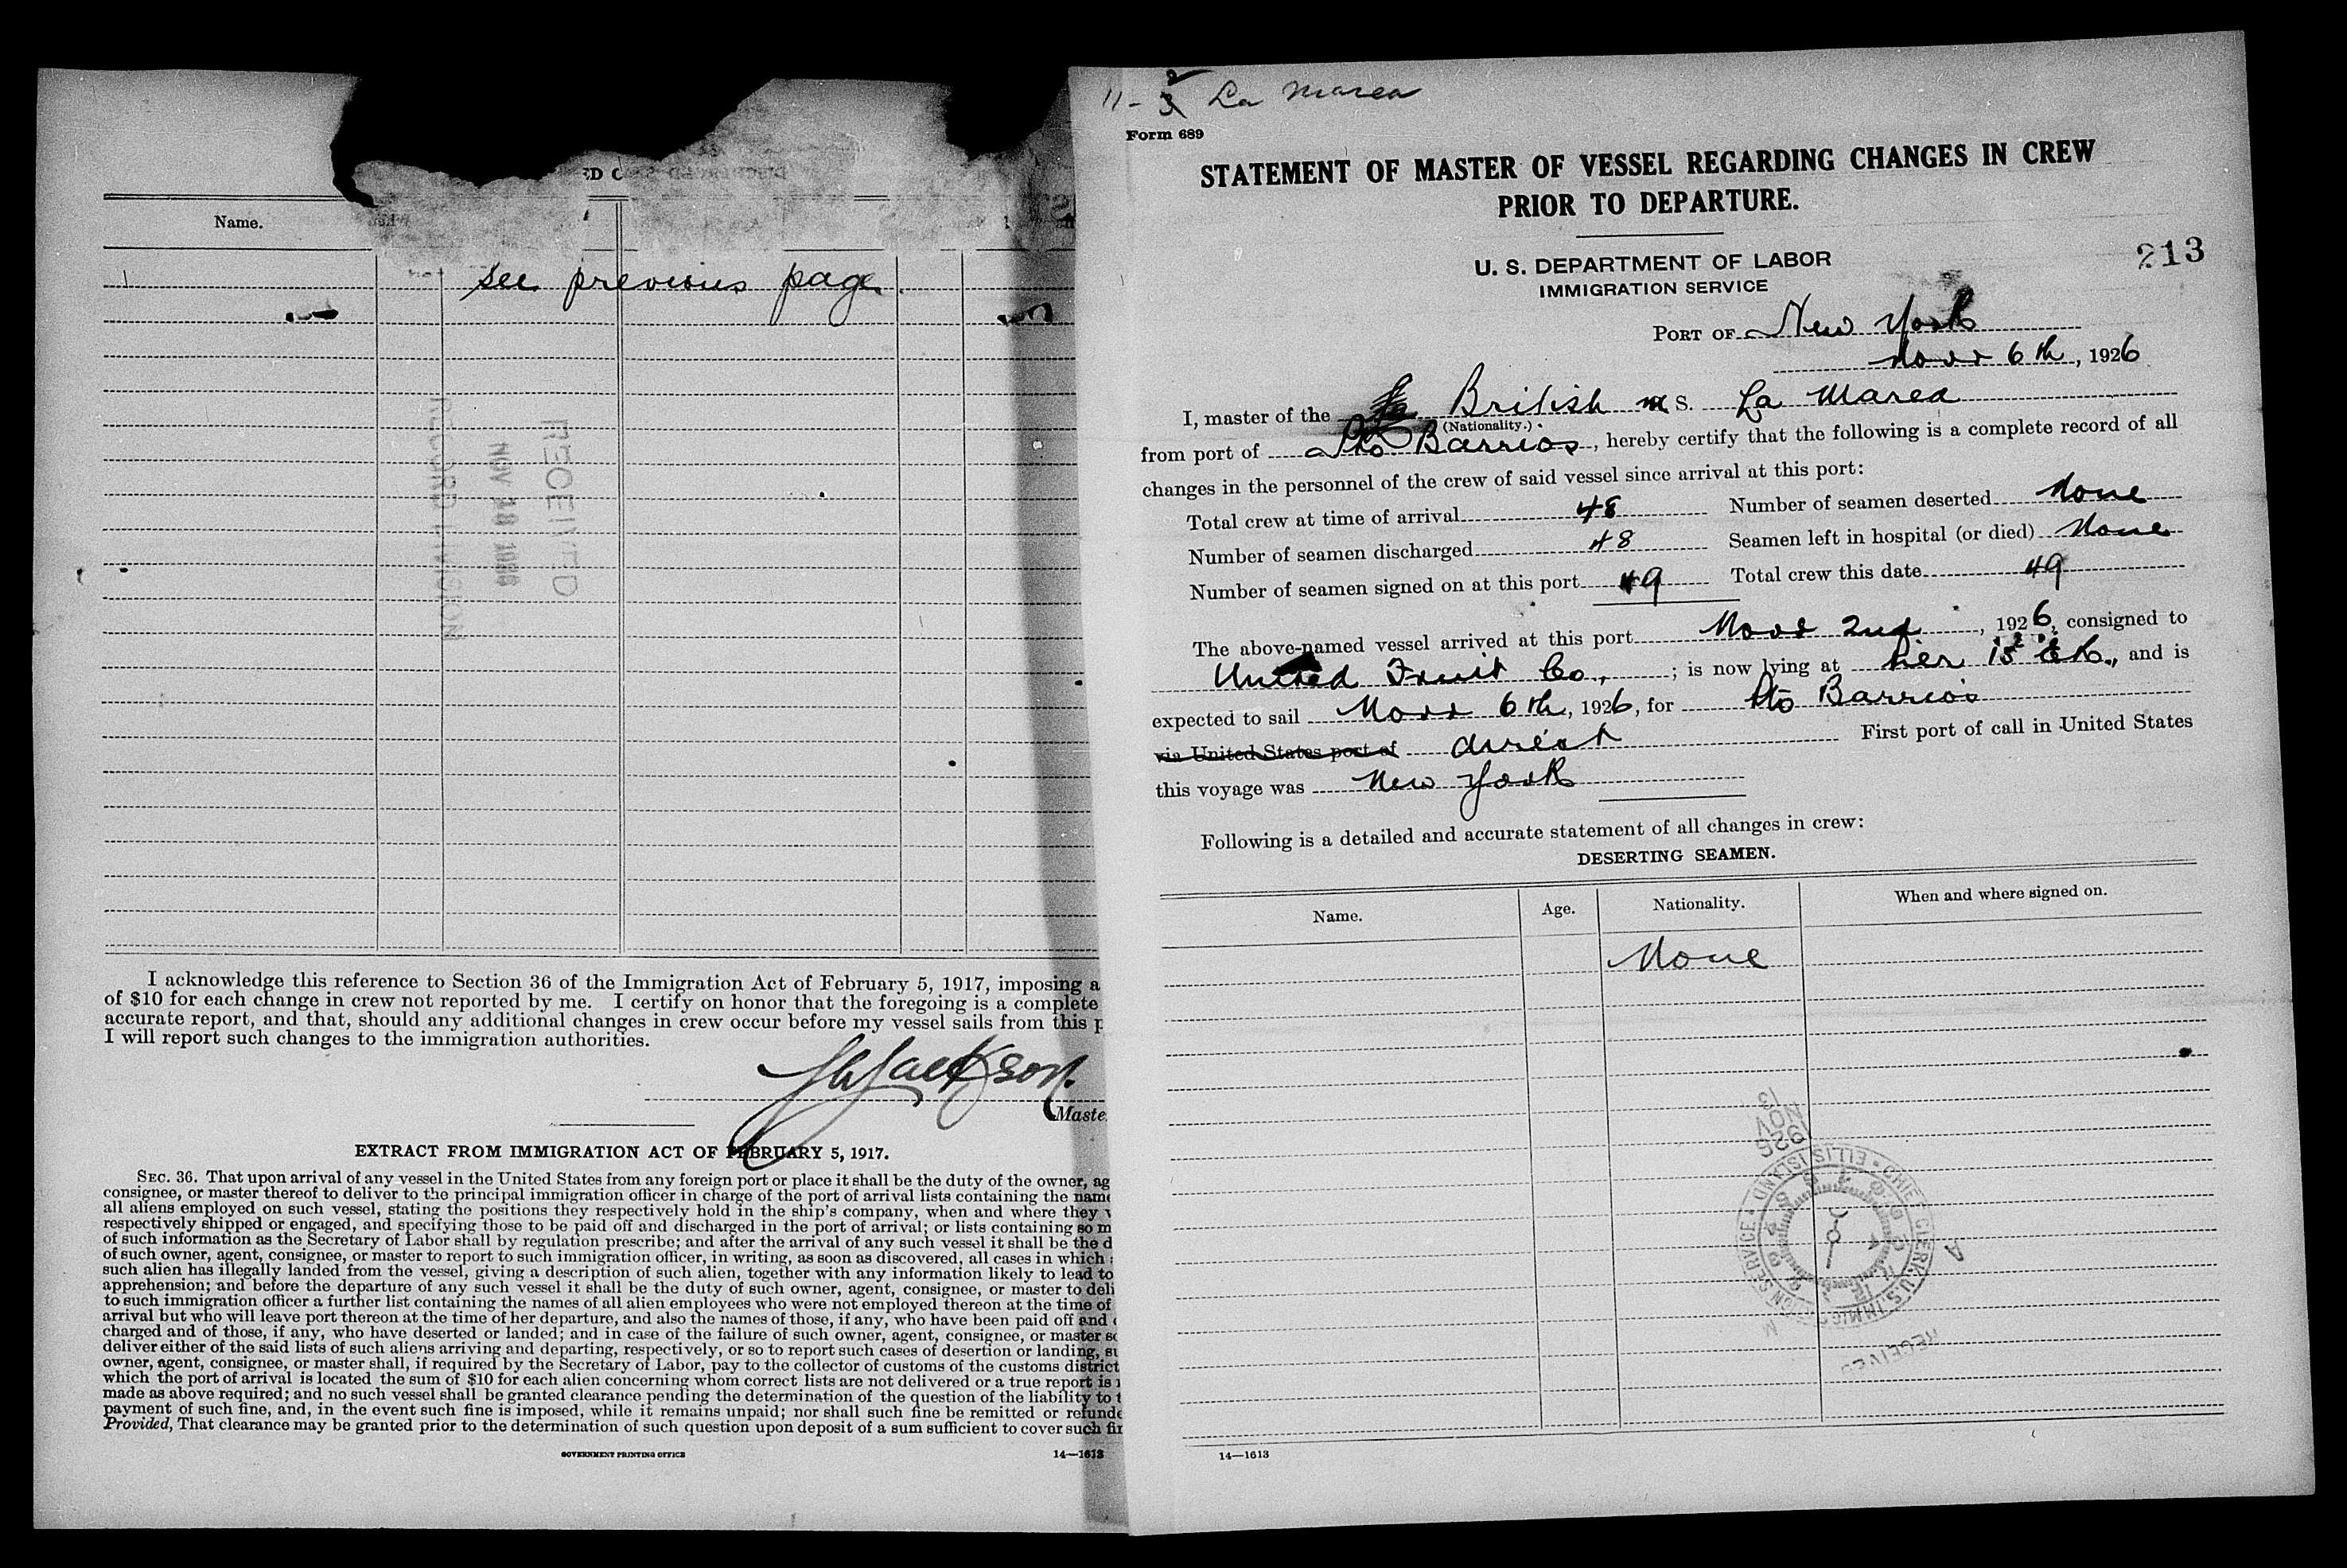 ED C
Name.
see previous page.
RECEIVED
NOV
RECORD DIVISION
I acknowledge this reference to Section 36 of the Immigration Act of February 5, 1917, imposing a
of $10 for each change in crew not reported by me. I certify on honor that the foregoing is a complete
accurate report, and that, should any additional changes in crew occur before my vessel sails from this p
I will report such changes to the immigration authorities.
Jackson.
Maste
EXTRACT FROM IMMIGRATION ACT OF FEBRUARY 5, 1917.
SEC. 36. That upon arrival of any vessel in the United States from any foreign port or place it shall be the duty of the owner, ag
consignee, or master thereof to deliver to the principal immigration officer in charge of the port of arrival lists containing the name
all aliens employed on such vessel, stating the positions they respectively hold in the ship's company, when and where they w
respectively shipped or engaged, and specifying those to be paid off and discharged in the port of arrival; or lists containing so m
of such information as the Secretary of Labor shall by regulation prescribe; and after the arrival of any such vessel it shall be the d
of such owner, agent, consignee, or master to report to such immigration officer, in writing, as soon as discovered, all cases in which
such alien has illegally landed from the vessel, giving a description of such alien, together with any information likely to lead to
apprehension; and before the departure of any such vessel it shall be the duty of such owner, agent, consignee, or master to deli
to such immigration officer a further list containing the names of all alien employees who were not employed thereon at the time of
arrival but who will leave port thereon at the time of her departure, and also the names of those, if any, who have been paid off and
charged and of those, if any, who have deserted or landed; and in case of the failure of such owner, agent, consignee, or master so
deliver either of the said lists of such aliens arriving and departing, respectively, or so to report such cases of desertion or landing, su
owner, agent, consignee, or master shall, if required by the Secretary of Labor, pay to the collector of customs of the customs district
which the port of arrival is located the sum of $10 for each alien concerning whom correct lists are not delivered or a true report is
made as above required; and no such vessel shall be granted clearance pending the determination of the question of the liability to t
payment of such fine, and, in the event such fine is imposed, while it remains unpaid; nor shall such fine be remitted or refunde
Provided, That clearance may be granted prior to the determination of such question upon deposit of a sum sufficient to cover such fin
GOVERNMENT PRINTING OFFICE 14—1613
11-2 La Marea
Form 689
STATEMENT OF MASTER OF VESSEL REGARDING CHANGES IN CREW
PRIOR TO DEPARTURE.
U. S. DEPARTMENT OF LABOR
IMMIGRATION SERVICE
213
PORT OF New York
Novr 6th, 1926
I, master of the British M S. La Marea
(Nationality.)
from port of Pto Barrios, hereby certify that the following is a complete record of all
changes in the personnel of the crew of said vessel since arrival at this port:
Total crew at time of arrival 48 Number of seamen deserted None
Number of seamen discharged 48 Seamen left in hospital (or died) None
Number of seamen signed on at this port 49 Total crew this date 49
The above-named vessel arrived at this port Novr 2nd, 1926, consigned to
United Fruit Co.,; is now lying at , and is
expected to sail Novr 6th, 1926, for Pto Barrios
via United States port of direct First port of call in United States
this voyage was New York
Following is a detailed and accurate statement of all changes in crew:
DESERTING SEAMEN.
Name. Age. Nationality. When and where signed on.
None
1926
NOV
13
CHIEF CLERK, U.S. IMMIGRATION SERVICE • ELLIS ISLAND
RECEIVED
14—1613